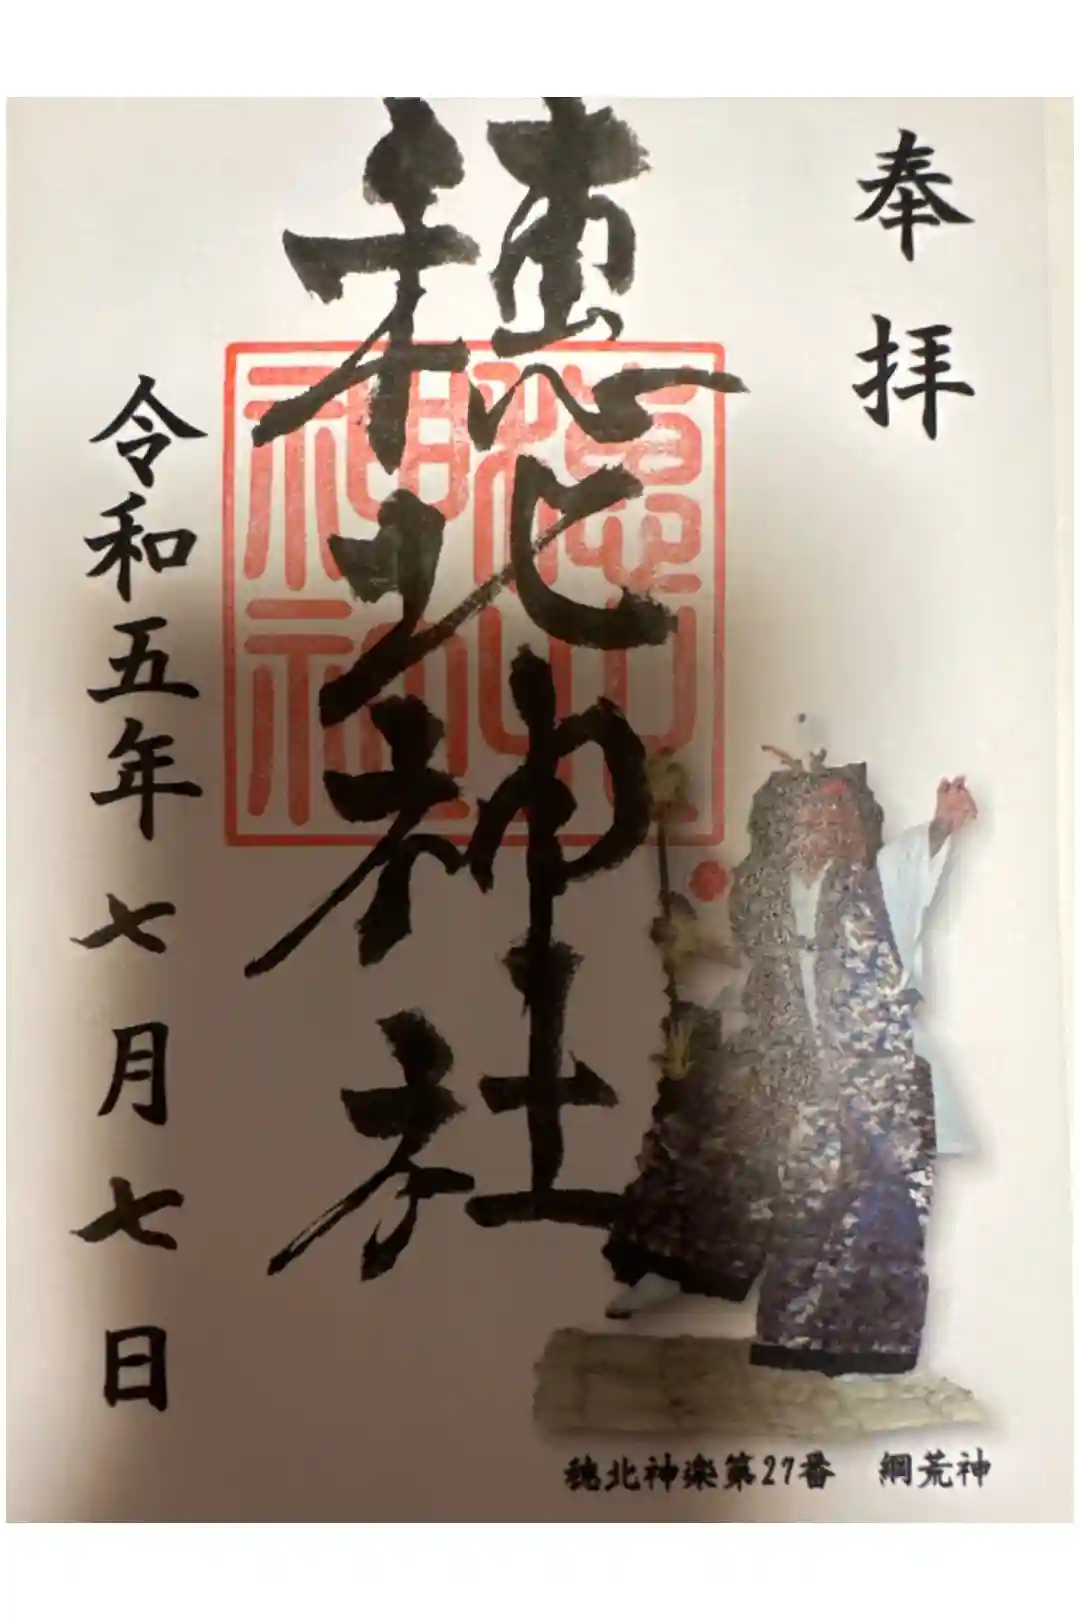 奉拝
穂北神社
令和五年七月七日
穂北神楽第27番　綱荒神